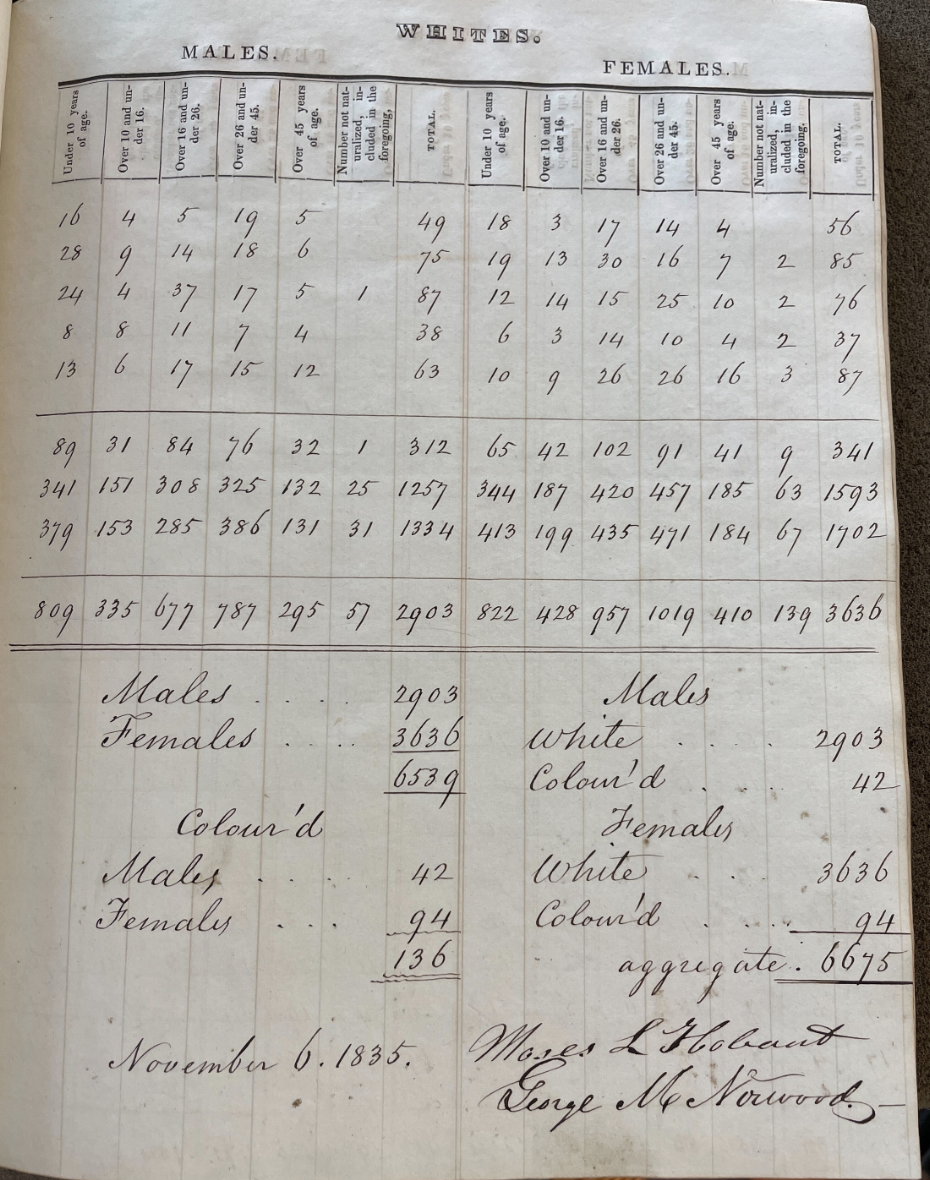 WHITES.
MALES. FEMALES.
Under 10 years of age. Over 10 and under 16. Over 16 and under 26. Over 26 and under 45. Over 45 years of age. Number not naturalized, included in the foregoing, TOTAL Under 10 years of age. Over 10 and under 16. Over 16 and under 26. Over 26 and under 45. Over 45 years of age. Number not naturalized, included in the foregoing. TOTAL.
16 4 5 19 5 49 18 3 17 14 4 56
28 9 14 18 6 75 19 13 30 16 7 2 85
24 4 37 17 5 1 87 12 14 15 25 10 2 76
8 8 11 7 4 38 6 3 14 10 4 2 37
13 6 17 15 12 63 10 9 26 26 16 3 87
89 31 84 76 32 1 312 65 42 102 91 41 9 341
341 151 308 325 132 25 1257 344 187 420 457 185 63 1593
379 153 285 386 131 31 1334 413 199 435 471 184 67 1702
809 335 677 787 295 57 2903 822 428 957 1019 410 139 3636
Males .... 2903 Males
Females .... 3636 White .... 2903
6539 Colour'd ... 42
Colour'd Females
Males .... 42 White ... 3636
Females ... 94 Colour'd .... 94
136 aggregate. 6675
November 6. 1835. Moses L Hobart
George M Norwood.